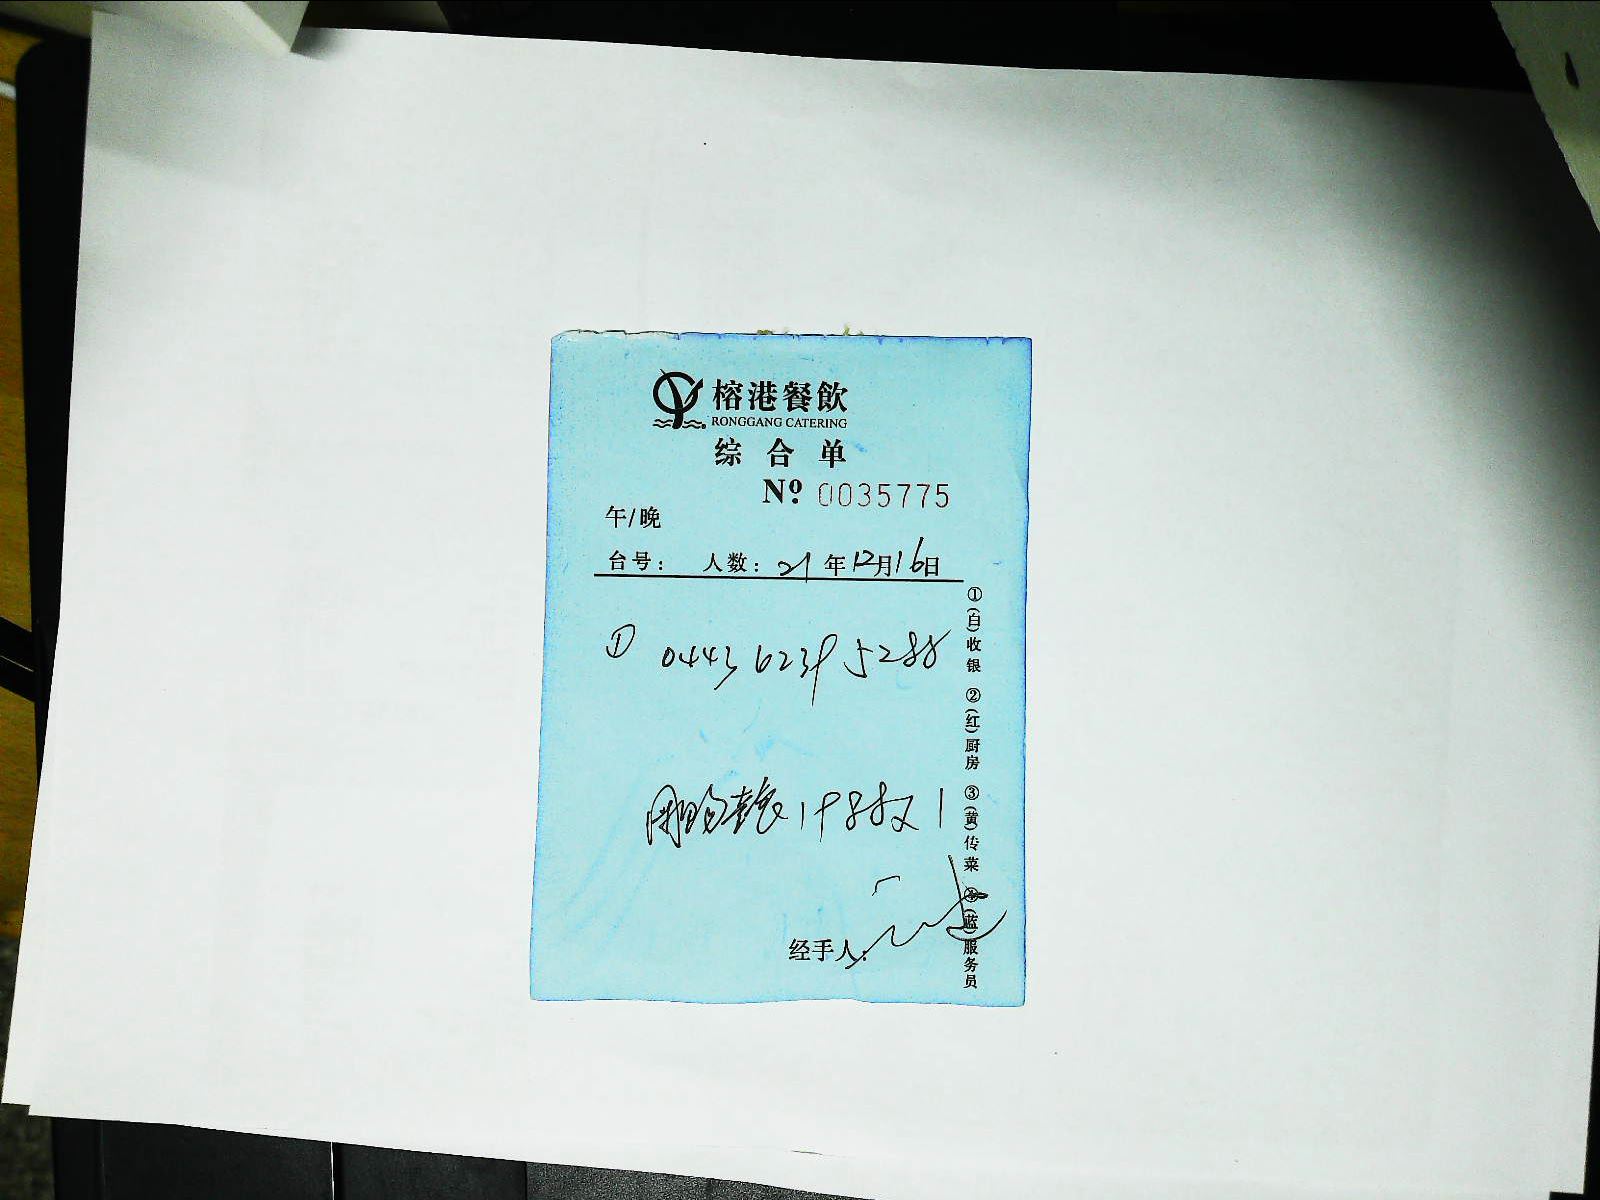 榕港餐飲
RONGGANG CATERING
综合单
Nº 0035775
午/晚
台号: 人数: 21年12月16日
① 0443 6239 5288
198
1
经手人:
①(白)收银 ②(红)厨房 ③(黄)传菜 ④(蓝)服务员